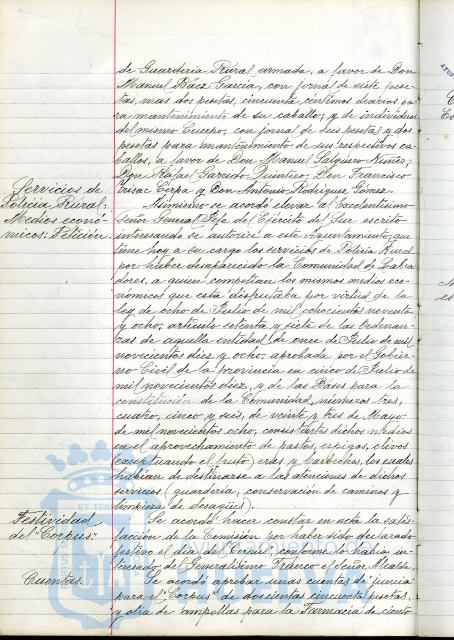 de Guardería Rural armada, a favor de Don
Manuel Báez García, con jornal de siete pese-
tas, mas dos pesetas, cincuenta céntimos diarios pa-
ra mantenimiento de su caballo; y de individuos
del mismo Cuerpo, con jornal de seis pesetas y dos
pesetas para mantenimiento de sus respectivos ca-
ballos, a favor de Don Manuel Salguero Núñez;
Don Rafael Garrido Quintero; Don Francisco
Cerpa y Don Antonio Rodríguez Gómez.
Servicios de
Policía Rural.
Medios econó-
micos: Petición.
Asimismo se acordó elevar al Excelentísimo
Señor General Jefe del Ejército del Sur escrito
interesando se autorice a este Ayuntamiento, que
tiene hoy a su cargo los servicios de Policía Rural
por haber desaparecido la Comunidad de Labra-
dores, a quien competían los mismos medios eco-
nómicos que esta disfrutaba por virtud de la
ley, de ocho de Julio de mil ochocientos noventa
y ocho, artículo setenta y siete de las Ordenan-
zas de aquella entidad de once de Julio de mil
novecientos diez y ocho, aprobada por el Gobier-
no Civil de la provincia en cinco de Julio de
mil novecientos diez, y de las Bases para la
constitución de la Comunidad, números tres,
cuatro, cinco y seis, de veinte y tres de Mayo
de mil novecientos ocho, consistentes dichos medios
en el aprovechamiento de pastos, espigas, olivos
(exceptuando el fruto) eras y barbechos, los cuales
habían de destinarse a las atenciones de dichos
servicios, (guardería, conservación de caminos y
limpieza de desagües).
Festividad
del "Corpus".
Se acordó hacer constar en acta la satis-
facción de la Comisión por haber sido declarado
festivo el día del Corpus, conforme había in-
teresado del Generalísimo Franco el señor Alcalde.
Cuentas.
Se acordó aprobar unas cuentas de juncia
para el "Corpus" de doscientas cincuenta pesetas,
y otra de ampollas para la Farmacia de ciento